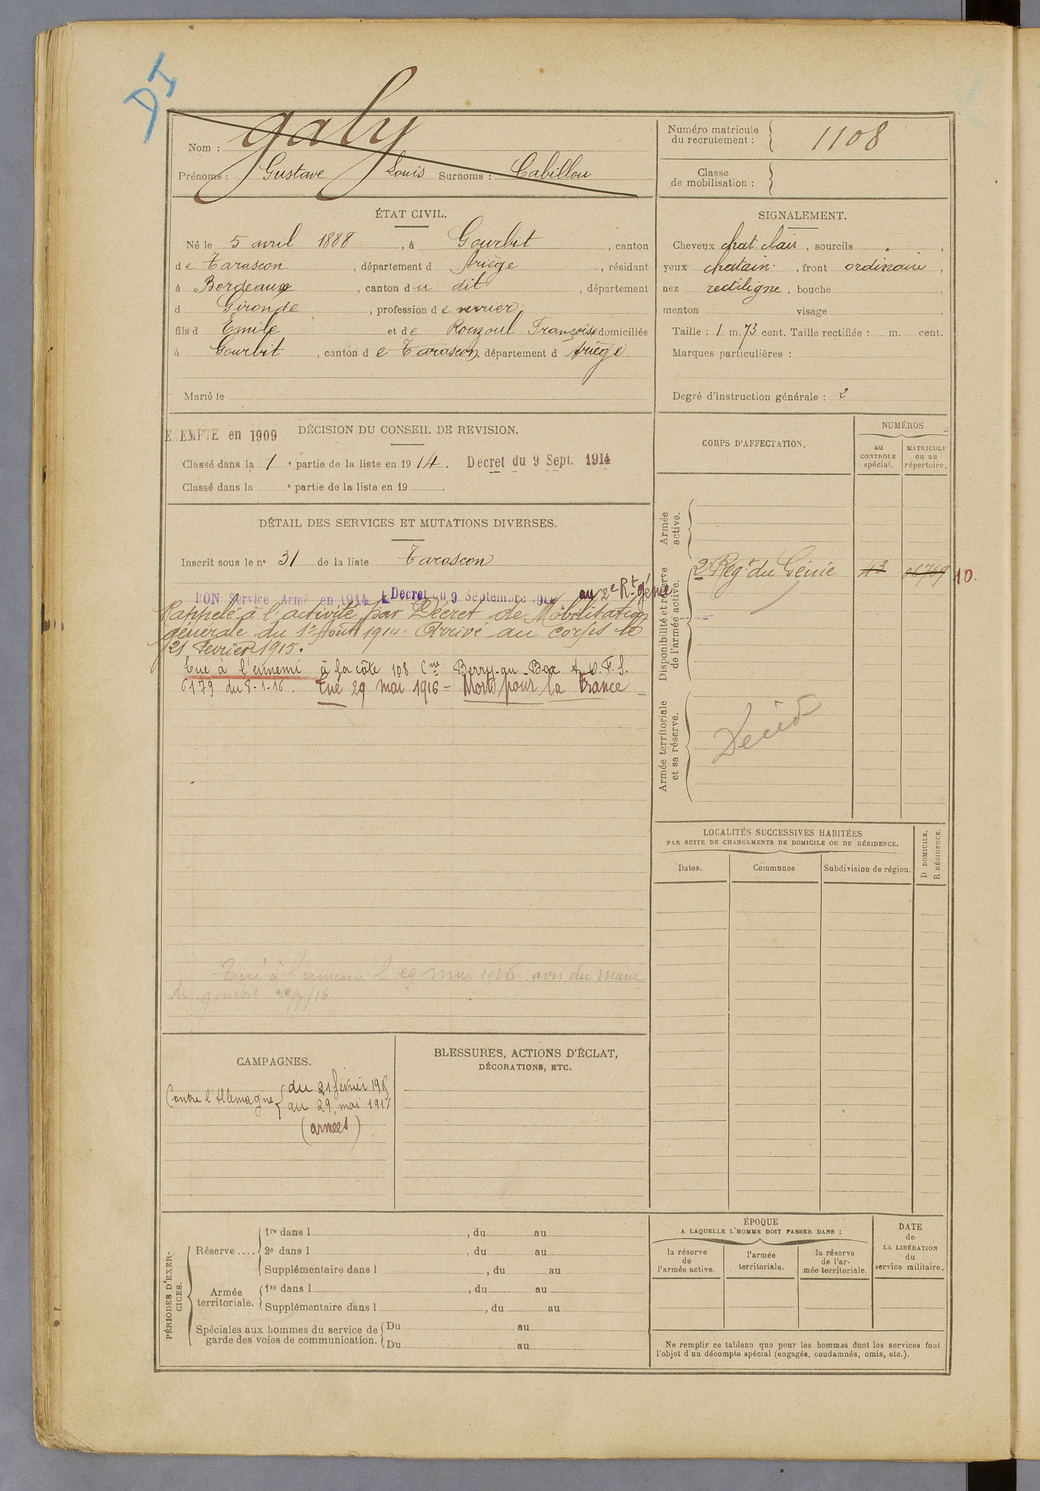 DI
Nom : Galy
Prénoms : Gustave Louis Surnoms : Cabillou
Numéro matricule
du recrutement : 1108
Classe
de mobilisation :
ÉTAT CIVIL.
Né le 5 avril 1888, à Gourbit, canton
de Tarascon, département d Ariège, résidant
à Bordeaux, canton du dit, département
d Gironde, profession de verrier
fils d Emile et de Rouzoul Françoise domiciliés
à Gourbit, canton de Tarascon, département d Ariège
Marié le
SIGNALEMENT.
Cheveux chat. clair, sourcils ,
yeux chatain, front ordinaire,
nez rectiligne, bouche
menton visage
Taille : 1 m. 73 cent. Taille rectifiée : m. cent.
Marques particulières :
Degré d'instruction générale : 2
EXEMPTE en 1909 DÉCISION DU CONSEIL DE REVISION.
Classé dans la 1e partie de la liste en 1914. Decret du 9 Sept. 1914
Classé dans la e partie de la liste en 19
DÉTAIL DES SERVICES ET MUTATIONS DIVERSES.
Inscrit sous le no 31 de la liste Tarascon
BON Service Armé en 1914 Decret du 9 Septembre 1914 au 2e Rt génie
Rappelé à l'activité par Décret de Mobilisation
générale du 1er Août 1914. Arrivé au corps le
21 Février 1915.
Tué à l'ennemi à la côte 108 Cne Berry-au-Bac
6179 du 8-1-16. Tué 29 mai 1916 - Mort pour la France
Tué à l'ennemi le 29 mai 1916 avis du Maire
de Gourbit
CORPS D'AFFECTATION.
NUMÉROS
au
CONTROLE
spécial.
MATRICULE
ou au
répertoire.
Armée
active.
Disponibilité et réserve
de l'armée active.
2e Régt du Génie 10.
Armée territoriale
et sa réserve.
Décédé
LOCALITÉS SUCCESSIVES HABITÉES
PAR SUITE DE CHANGEMENTS DE DOMICILE OU DE RÉSIDENCE.
Dates.
Communes
Subdivision de région.
D. DOMICILE.
R. RÉSIDENCE.
CAMPAGNES.
Contre l'Allemagne du 21 février 1915
au 29 mai 191
(armées)
BLESSURES, ACTIONS D'ÉCLAT,
DÉCORATIONS, ETC.
PÉRIODES D'EXER-
CICES.
Réserve ....
1re dans l , du au
2e dans l , du au
Supplémentaire dans l , du au
Armée
territoriale.
1re dans l , du au
Supplémentaire dans l , du au
Spéciales aux hommes du service de
garde des voies de communication.
Du au
Du au
ÉPOQUE
A LAQUELLE L'HOMME DOIT PASSER DANS :
la réserve
de
l'armée active.
l'armée
territoriale.
la réserve
de l'ar-
mée territoriale.
DATE
de
LA LIBÉRATION
du
service militaire.
Ne remplir ce tableau que pour les hommes dont les services font
l'objet d'un décompte spécial (engagés, condamnés, omis, etc.).